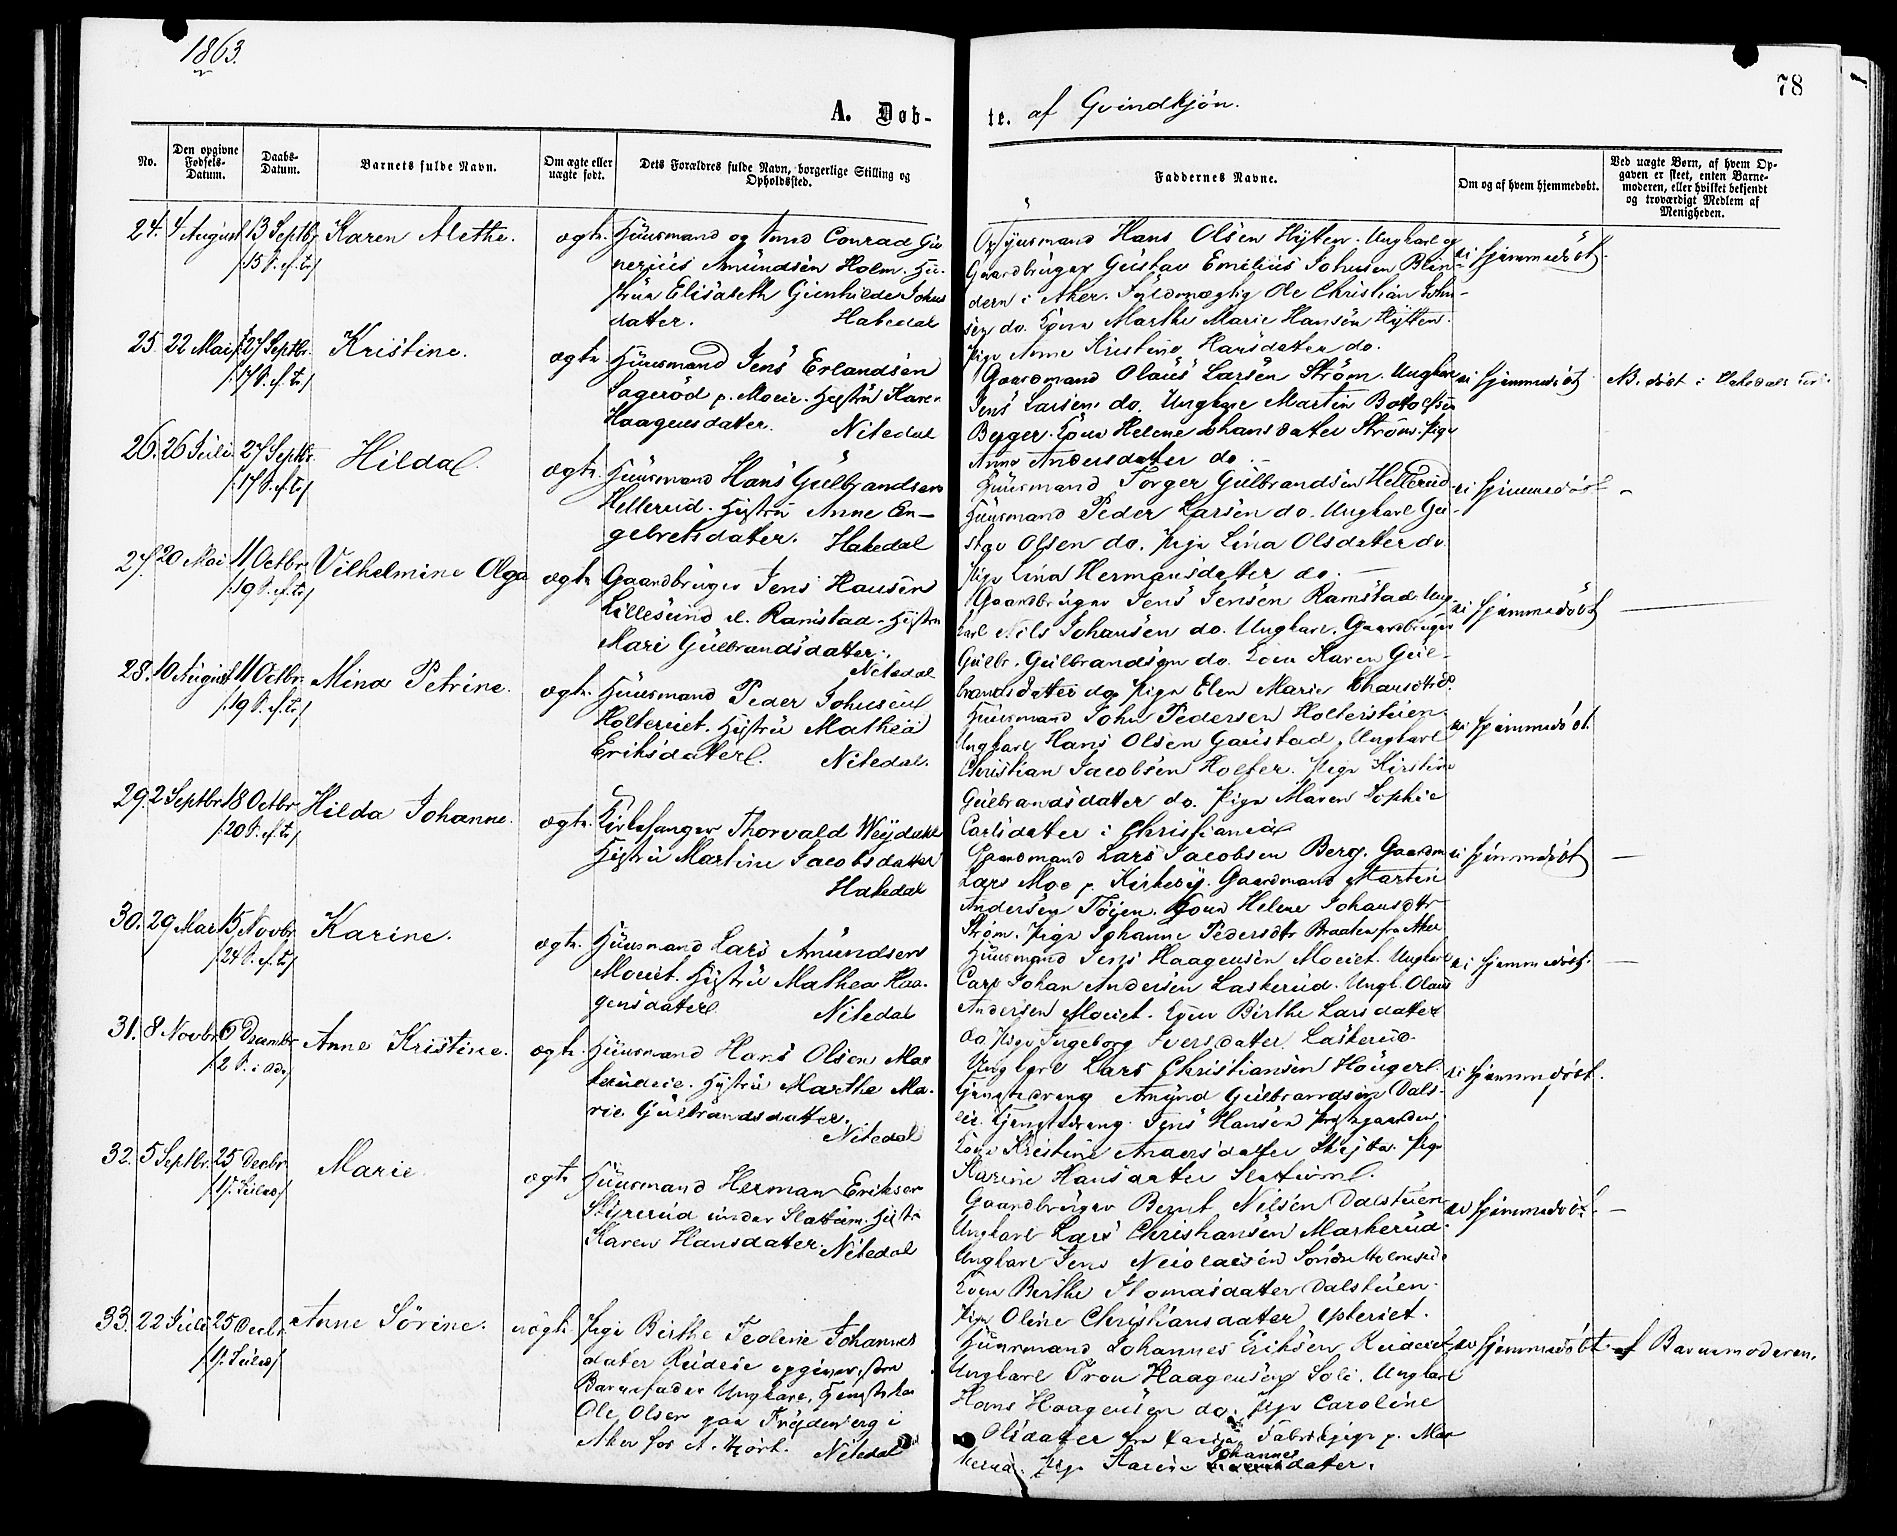 1863.
78
A. Døb-
te. af Qvindkjøn.
No.
Den opgivne Fødsels-Datum.
Daabs-Datum.
Barnets fulde Navn.
Om ægte eller uægte født.
Dets Forældres fulde Navn, borgerlige Stilling og Opholdssted.
Faddernes Navne.
Om og af hvem hjemmedøbt.
Ved uægte Børn, af hvem Op-
gaven er skeet, enten Barne-
moderen, eller hvilket bekjendt
og troværdigt Medlem af
Menigheden.
24. 4 August 13 Septbr Karen Alethe. ægte.
15 S. e. tr
Huusmand og Smed Conrad Gu-
nerius Amundsen Holm. Hu-
strue Elisabeth Gunhilde Johns
datter. Hakedal
Huusmand Hans Olsen Hytten. Ungkarl og
Gaardbruger Gustav Emilius Johnsen Blin-
dern i Aker. Fuldmægtig Ole Christian John-
sen do. Kone Marthe Marie Hansen Hytten.
Pige Anne Kristine Hansdatter do.
ei hjemmedøbt.
25. 22 Mai 27 Septbr. Kristine. ægte.
17 S. e. tr
Huusmand Jens Erlandsen
Sagerød p. Moeie. Hustru Karen
Haagensdatter. Nitedal
Gaardmand Olaus Larsen Strøm. Ungkarl
Jens Larsen do. Ungkarl Martin Botolfsen
Berger. Kone Helene Johansdatter Strøm. Pige
Anne Andersdatter do.
ei hjemmedøbt NB. døbt i Hakedals
26. 26 Juli 27 Septbr. Hilda. ægte.
17 S. e. tr
Huusmand Hans Gulbrandsen
Hellerud. Hustru Anne En-
gebretsdatter. Hakedal
Huusmand Torger Gulbrandsen Hellerud.
Huusmand Peder Larsen do. Ungkarl Gu-
stav Olsen do. Pige Lina Olsdatter do.
Pige Lina Hermansdatter do.
ei hjemmedøbt
27. 20 Mai 11 Octbr. Vilhelmine Olga ægte
19 S. e. tr
Gaardbruger Jens Hansen
Lillesund el. Ramstad. Hustru
Mari Gulbrandsdatter.
Nitedal
Gaardbruger Jens Jensen Ramstad. Ung-
karl Nils Johansen do. Ungkarl. Gaardbruger
Gulbr. Gulbrandsen do. Kone Karen Gul-
brandsdatter do. Pige Elen Marie
ei hjemmedøbt
28. 10 August 11 Octbr. Mina Petrine. ægte.
19 S. e. tr
Huusmand Peder Johnsen
Holtereiet. Hustru Mathea
Eriksdatter. Nitedal.
Huusmand John Pedersen Holterstuen.
Ungkarl Hans Olsen Gaustad. Ungkarl
Christian Jacobsen Holter. Pige Kirstine
Gulbrandsdatter do. Pige Maren Sophie
Carlsdatter i Christiania
ei hjemmedøbt.
29. 2 Septbr. 18 Octbr. Hilda Johanne. ægte.
20 S. e. tr
Kirkesanger Thorvald Weydahl
Hustru Martine Jacobsdatter
Hakedal
Gaardmand Lars Jacobsen Berg. Gaardm.
Lars Moe p. Kirkeby. Gaardmand Martin
Andersen Tøien. Kone Helene Johansdtr
Strøm. Pige Johanne Pedersdtr Braaten fra Aker
ei hjemmedøbt
30. 29 Mar 15 Novbr. Karine. ægte.
24 S. e. tr
Huusmand Lars Amundsen
Moeiet. Hustru Mathea Haa-
gensdatter. Nitedal
Huusmand Jens Haagensen Moeiet. Ungkarl
Carl Johan Andersen Laskerud. Ungk. Olaus
Andersen Moeiet. Kone Birthe Larsdatter
do. Pige Ingeborg Iversdatter Laskerud.
ei hjemmedøbt.
31. 8 Novbr. 6 Decembr. Anne Kristine. ægte.
2 S. i Adv
Huusmand Hans Olsen Mar-
kerudeie. Hustru Marthe Ma-
rie Gulbrandsdatter.
Nitedal
Ungkarl Lars Christiansen Hougerl.
Tjenstedreng Amund Gulbrandsen Dals-
eie. Tjenstedreng Jens Hansen Prestegaarden.
Kone Kristine Andersdatter Skytta. Pige
Karine Hansdatter Slattum.
ei hjemmedøbt.
32. 5 Septbr. 25 Decbr. Marie. ægte
1. Juled
Huusmand Herman Eriksen
Skyrerud under Slattum. Hustru
Karen Hansdatter. Nitedal
Gaardbruger Bernt Nilsen Dalstuen
Ungkarl Lars Christiansen Markerud.
Ungkarl Jens Nicolaisen
Kone Birthe Thomasdatter Dalstuen.
Pige Oline Christiansdatter
ei hjemmedøbt.
33. 22 Juli 25 Decbr. Anne Sørine. uægte
1. Juled
Pige Birthe Teoline Johannes
datter opgiver, som
Barnefader Ungkarl,
Ole Olsen paa Frydenberg i
Aker hos A. Hjort. Nitedal
Huusmand Johannes Eriksen
Ungkarl Tron Haagensen Soli. Ungkarl
Hans Haagensen do. Pige Caroline
Olsdatter fra Fabrikpige p. Mar-
kerud. Pige Karine Johannesdatter.
ei hjemmedøbt. af Barnemoderen.